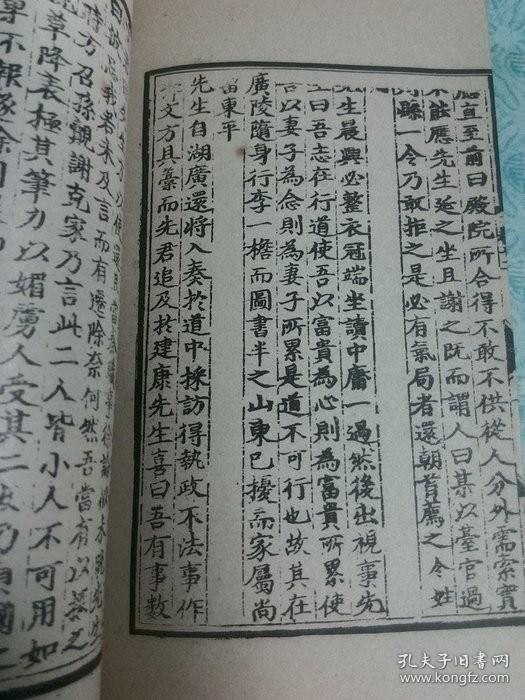 應直至前曰殿院所合得不敢不供從人分外需索實
不能應先生延之坐且謝之既而謂人曰某以臺官過
縣一令乃敢拒之是必有氣局者還朝首薦之令姓
先生晨興必整衣冠端坐讀中庸一過然後出視事先
生曰吾志在行道使吾以富貴為心則為富貴所累使
吾以妻子為念則為妻子所累是道不可行也故其在
廣陵隨身行李一檐而圖書半之山東已擾而家屬尚
留東平
先生自湖廣還將入奏於道中採訪得執政不法事作
文方具藁而先君追及於建康先生喜曰吾有事數
我若未及言而有遷除奈何然吾當有以
時方召孫覿謝克家乃言此二人皆小人不可用如
草降表極其筆力以媚虜人受其二
單不報遂
孔夫子旧书网
www.kongfz.com